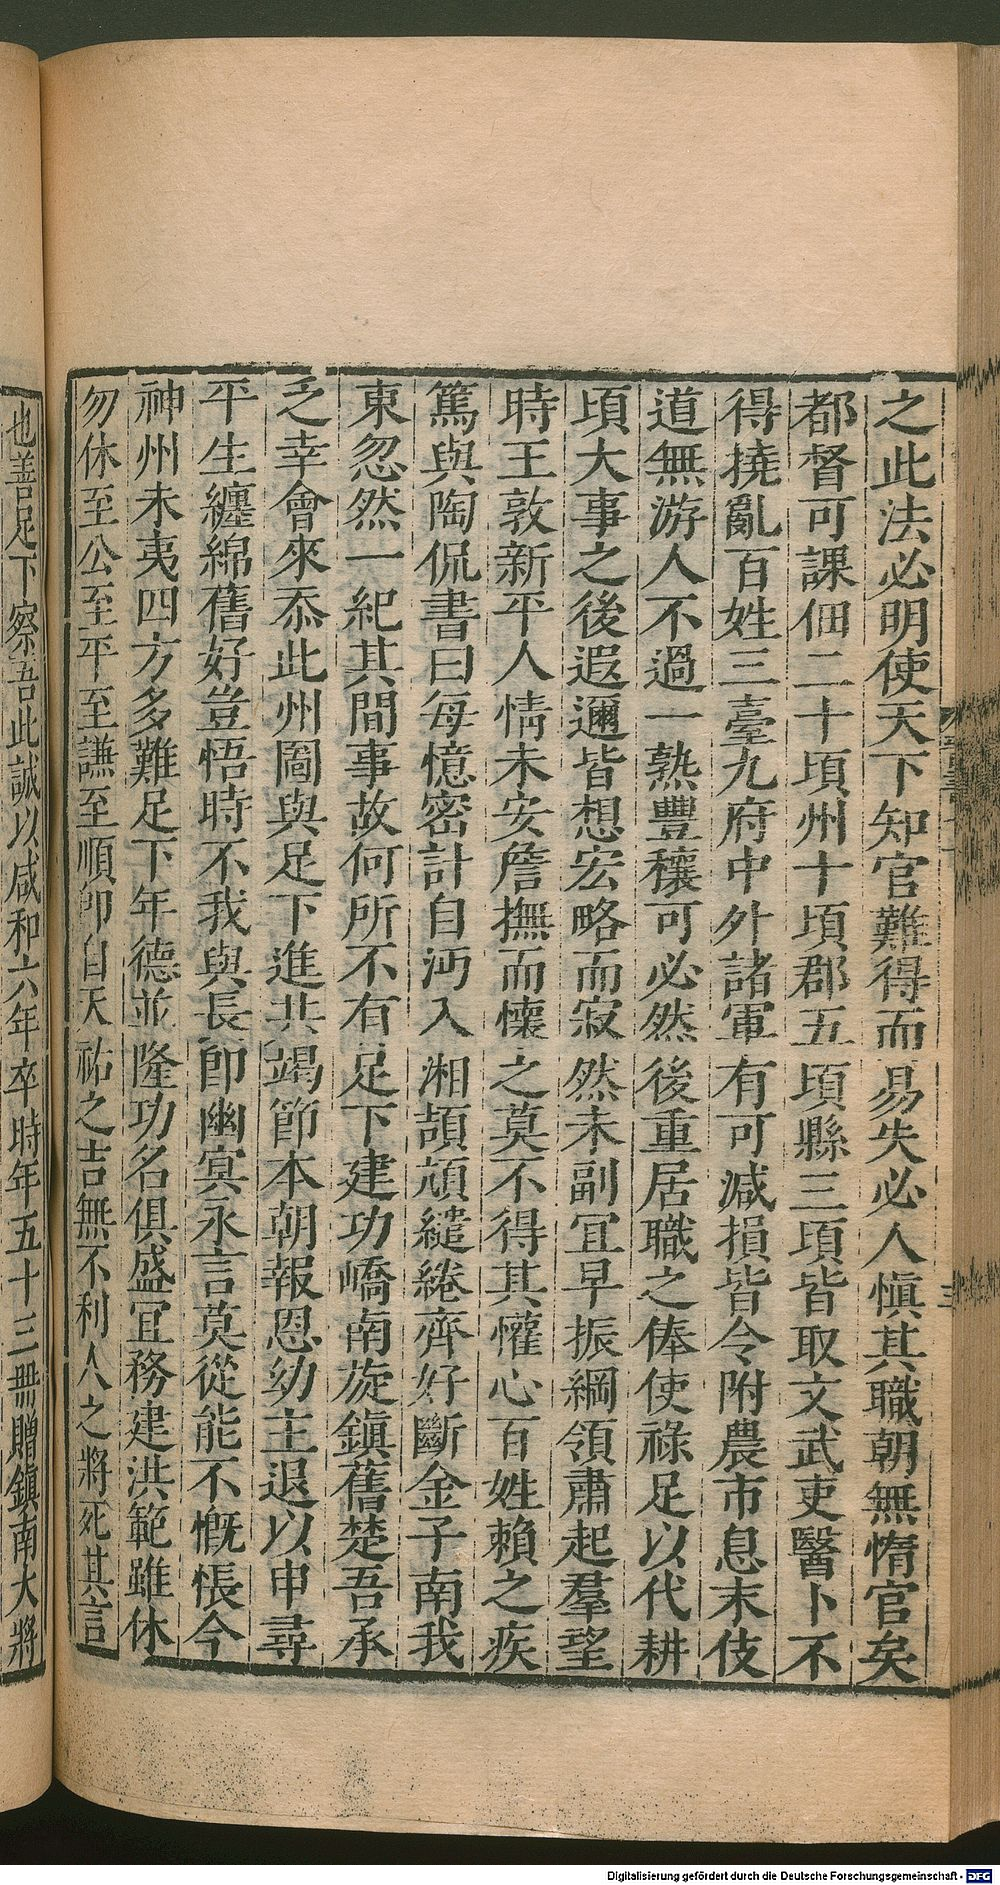 之此法必明使天下知官難得而易失必人慎其職朝無惰官矣
都督可課佃二十頃州十頃郡五頃縣三頃皆取文武吏醫卜不
得撓亂百姓三臺九府中外諸軍有可減損皆令附農市息末伎
道無游人不過一熟豐穰可必然後重居職之俸使祿足以代耕
頃大事之後遐邇皆想宏略而寂然未副宜早振綱領肅起羣望
時王敦新平人情未安詹撫而懷之莫不得其懽心百姓賴之疾
篤與陶侃書曰每憶密計自沔入湘頡頏繾綣齊好斷金子南我
東忽然一紀其間事故何所不有足下建功嶠南旋鎮舊楚吾承
乏幸會來忝此州圖與足下進共竭節本朝報恩幼主退以申尋
平生纏綿舊好豈悟時不我與長即幽冥永言莫從能不慨悵今
神州未夷四方多難足下年德並隆功名俱盛宜務建洪範雖休
勿休至公至平至謙至順即自天祐之吉無不利人之將死其言
也善足下察吾此誠以咸和六年卒時年五十三冊贈鎮南大將
Digitalisierung gefördert durch die Deutsche Forschungsgemeinschaft - DFG